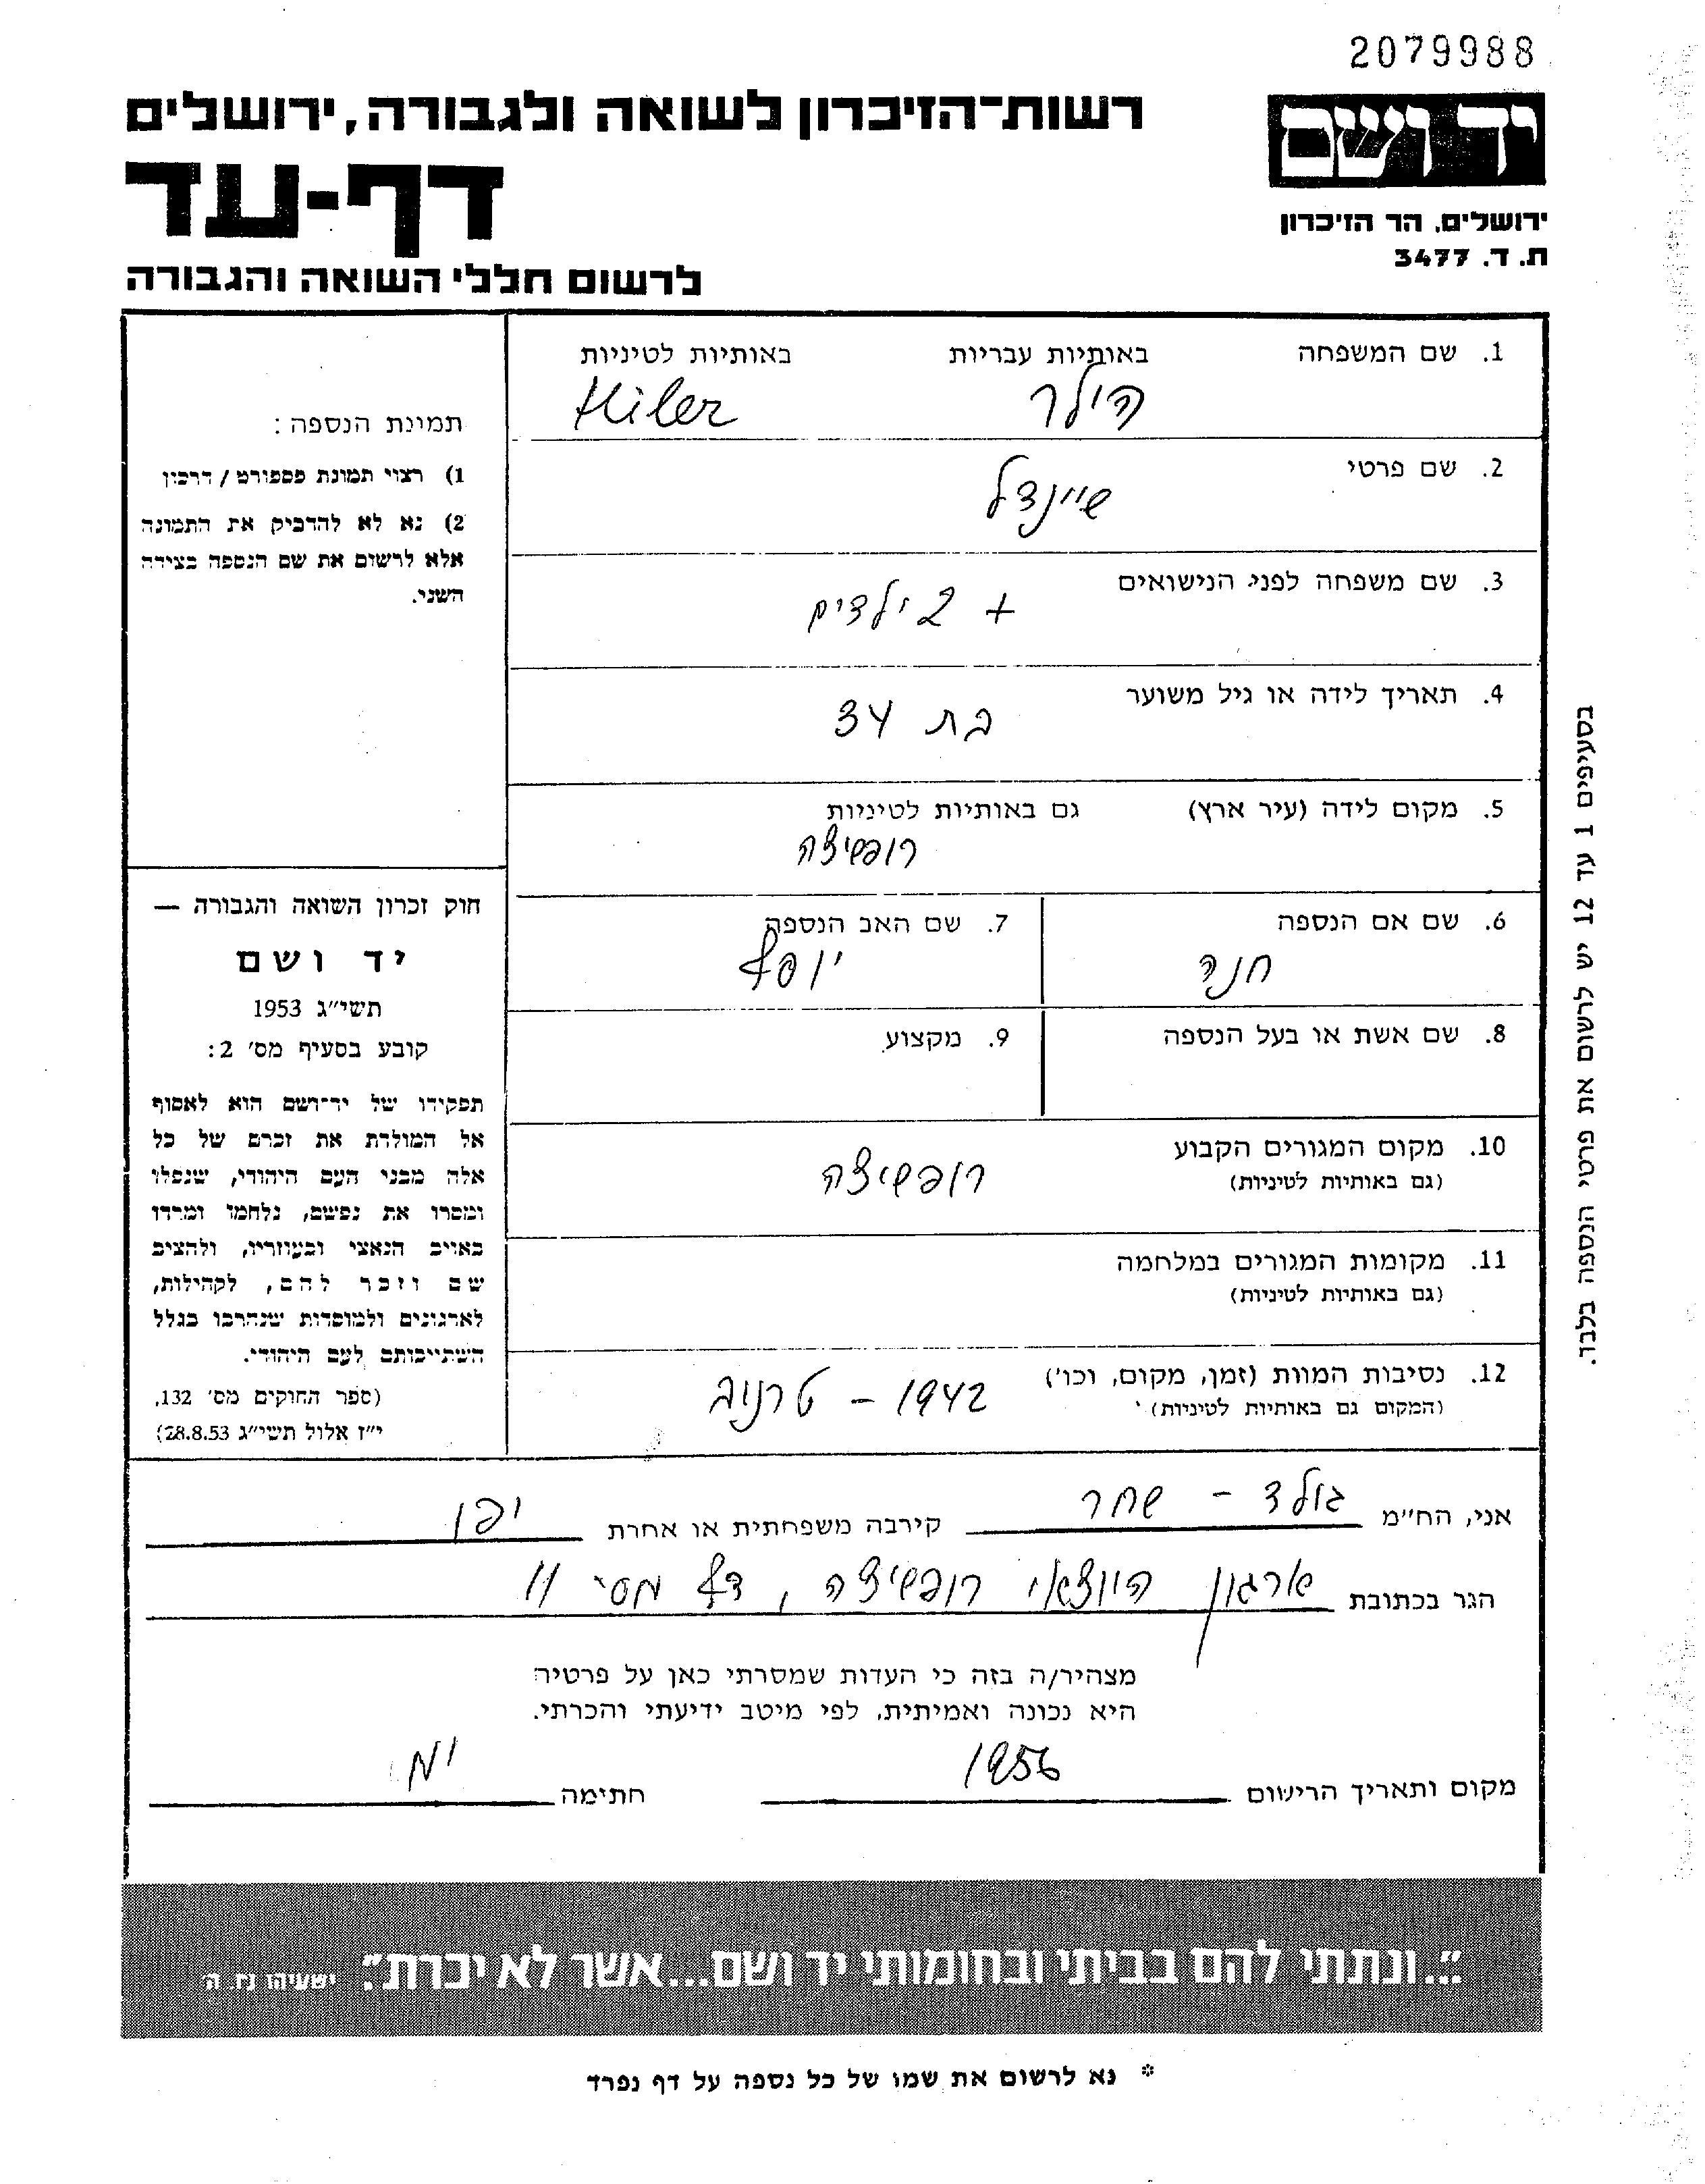 2079988
יד ושם
רשות־הזיכרון לשואה ולגבורה, ירושלים
דף-עד
ירושלים, הר הזיכרון
ת. ד. 3477
לרשום חללי השואה והגבורה
1. שם המשפחה באותיות עבריות באותיות לטיניות
הילר Hiler
2. שם פרטי
שיינדל
3. שם משפחה לפני הנישואים
+ 2 ילדים
4. תאריך לידה או גיל משוער
בת 34
5. מקום לידה (עיר ארץ) גם באותיות לטיניות
רופשיצה
6. שם אם הנספה 7. שם האב הנספה
חנה יוסף
8. שם אשת או בעל הנספה 9. מקצוע
10. מקום המגורים הקבוע
(גם באותיות לטיניות)
רופשיצה
11. מקומות המגורים במלחמה
(גם באותיות לטיניות)
12. נסיבות המוות (זמן, מקום, וכו')
(המקום גם באותיות לטיניות)
1942 – טרנוב
תמונת הנספה:
1) רצוי תמונת פספורט / דרכון
2) נא לא להדביק את התמונה
אלא לרשום את שם הנספה בצידה
השני.
חוק זכרון השואה והגבורה —
יד ושם
תשי״ג 1953
קובע בסעיף מס' 2:
תפקידו של יד־ושם הוא לאסוף
אל המולדת את זכרם של כל
אלה מבני העם היהודי, שנפלו
ומסרו את נפשם, נלחמו ומרדו
באויב הנאצי ובעוזריו, ולהציב
שם וזכר להם, לקהילות,
לארגונים ולמוסדות שנחרבו בגלל
השתייכותם לעם היהודי.
(ספר החוקים מס' 132,
י״ז אלול תשי״ג 28.8.53)
בסעיפים 1 עד 12 יש לרשום את פרטי הנספה בלבד.
אני, הח״מ גולד - שחר קירבה משפחתית או אחרת
הגר בכתובת ארגון היוצאי רופשיצה, דף מס' 11
מצהיר/ה בזה כי העדות שמסרתי כאן על פרטיה
היא נכונה ואמיתית, לפי מיטב ידיעתי והכרתי.
מקום ותאריך הרישום 1956 חתימה
״...ונתתי להם בביתי ובחומותי יד ושם...אשר לא יכרת״. ישעיהו נו, ה'
* נא לרשום את שמו של כל נספה על דף נפרד